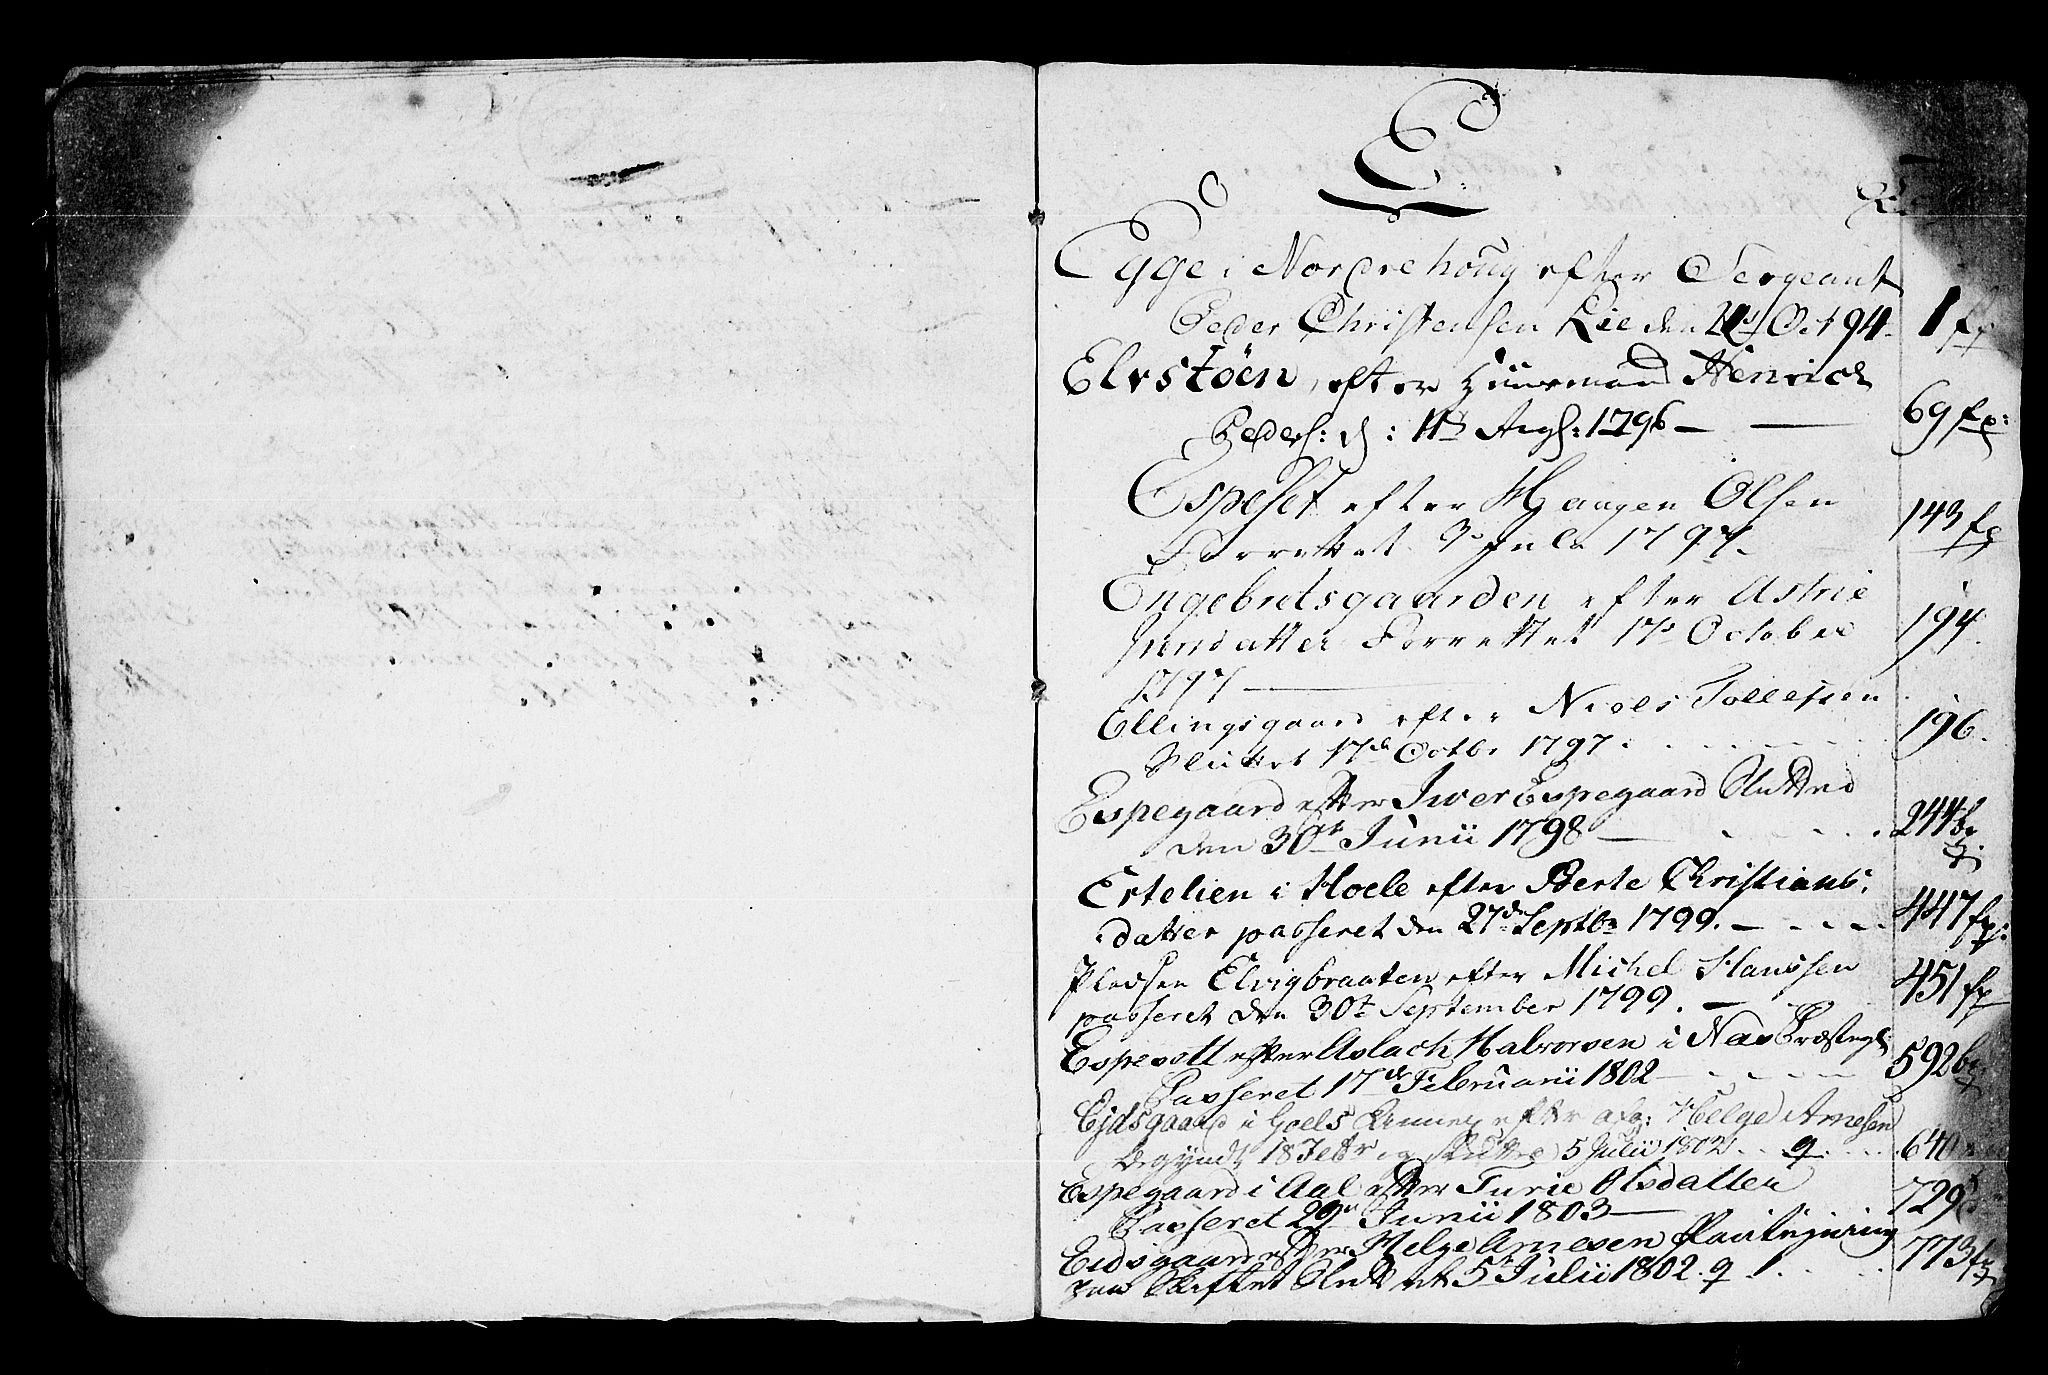 E
Egge i Nordrehoug efter Sergeant
Peder Christensen Lie den Oct 94. 1
Elvstøen, efter Huusmand Henrich
Peders: d: 11te Augs: 1796 — — 69 fp:
Espeset efter Haagen Olsen
Forrettet 3 Jula 1797. 143 fp
Engebretsgaarden efter Astrie
datter Forrettet 17de October 194.
1797 —
Ellingsgaard efter Niels Tollefsen
Sluttet 17de Octbr 1797. 196.
Espegaard efter Iver Espegaard Slutted
den 30te Junii 1798 — 244
Ertelien i Hoele efter Berte Christians
datter passeret den 27de Septbr 1799. — 447 fp:
Pladsen Elvigbraaten efter Michel Hanssen
passeret den 30te September 1799. — 451 fp
Espesett efter Aslach Halvorsen i Næs Præstegl
Passeret 17de Februarii 1802 592
Ejdsgaard i Goels efter afg: Helge Arnesen
Begyndt 18 Febr og Slutted 5 Julii 1802 . . 9 . . . 640
Espegaard i Aal efter Turie Olsdatter
Passeret 29de Junii 1803 — 729
Eidsgaard efter Helge Arnesen
Skiftet Sluttet 5te Julii 1802. 9 773